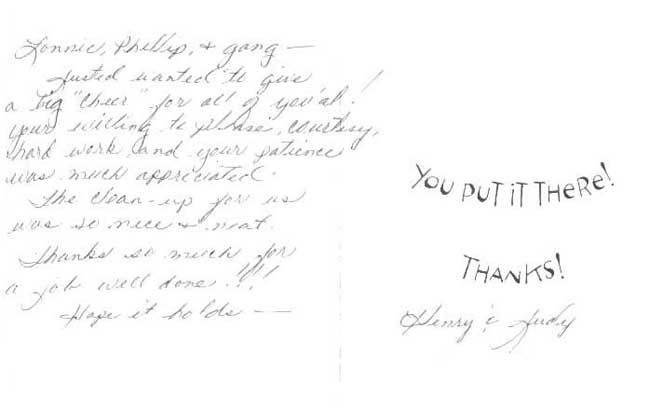 Lonnie, Phillip, & gang —
Justed wanted to give
a big "cheer" for all of you'all!
your willing to please, courtesy,
hard work and your patience
was much appreciated.
The clean-up for us
was so nice & neat.
Thanks so much for
a job well done!!!!
Hope it holds —
YOU PUT iT THeRe!
THANKS!
Henry & Judy